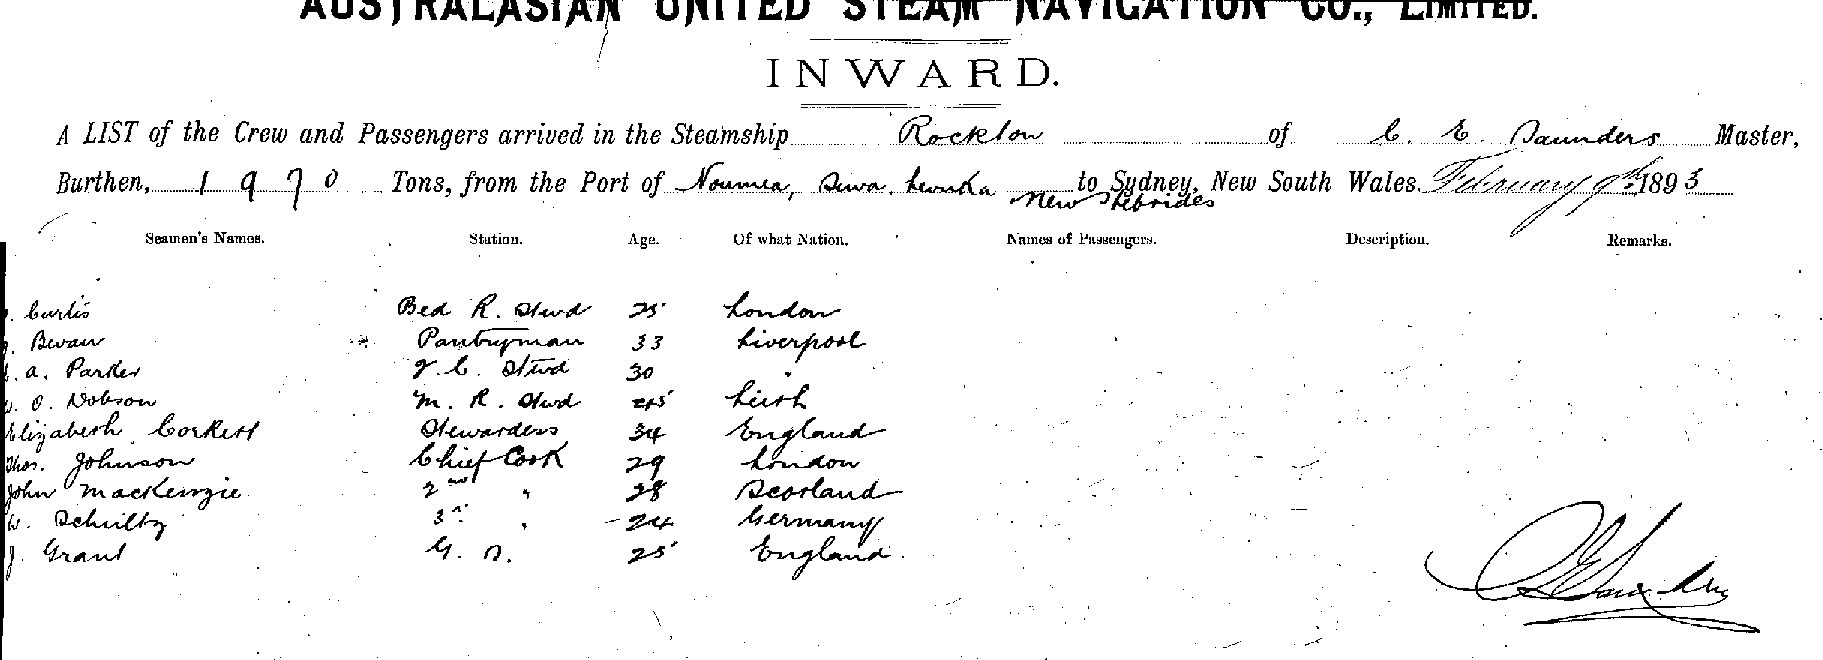 AUSTRALASIAN UNITED STEAM NAVIGATION CO., LIMITED.
INWARD.
A LIST of the Crew and Passengers arrived in the Steamship Rockton of C. E. Saunders Master,
Burthen, 1970 Tons, from the Port of Noumea, Suva, Levuka to Sydney, New South Wales. February 9th 1893
New Hebrides
Seamen's Names. Station. Age. Of what Nation. Names of Passengers. Description. Remarks.
Curtis Bed R. Stwd 25 London
Bevan Pantryman 33 Liverpool
A. Parker F. C. Stwd 30 "
O. Dobson M. R. Stwd 45 Leith
Elizabeth Corkett Stewardess 34 England
Thos. Johnson Chief Cook 29 London
John Mackenzie 2nd " 28 Scotland
W. Schultz 3rd " 24 Germany
J. Grant G. S. 25 England.